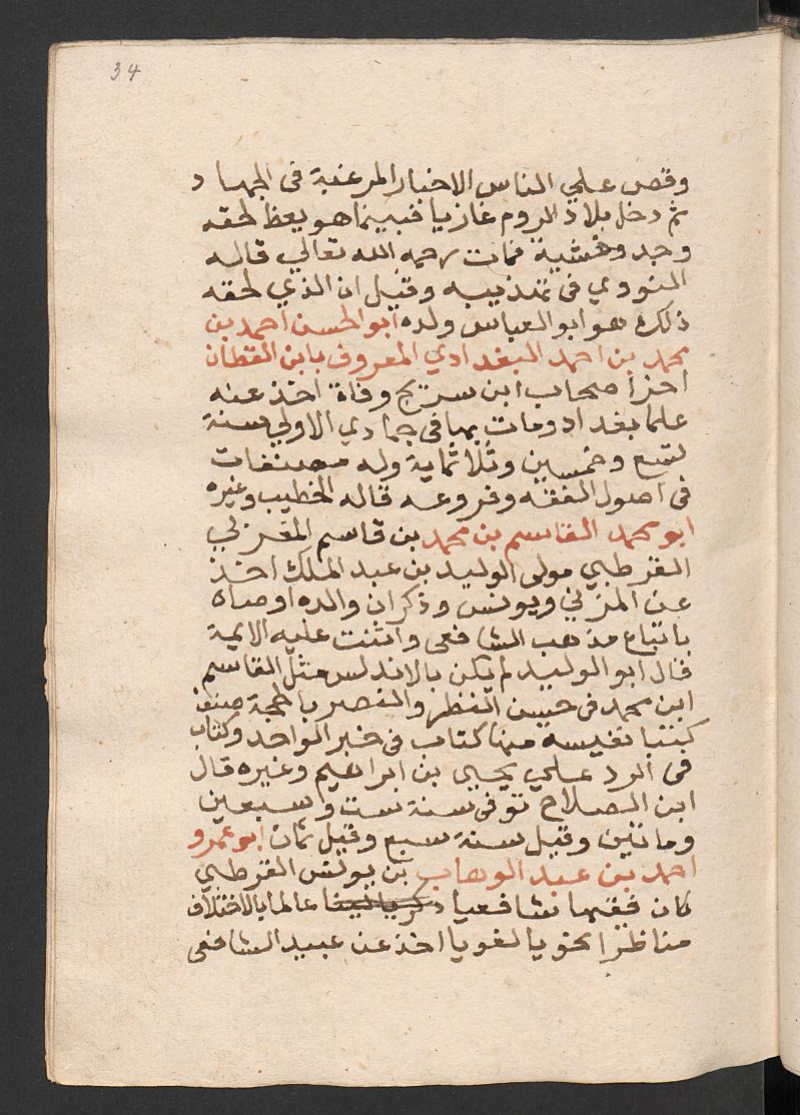 34
وقص علي الناس الاخبار المرغبة فى الجهاد
ثم دخل بلاد الروم غازيا فبينما هو يعظ لحقه
وجد وغشية فمات رحمه الله تعالي قاله
النووي فى تهذيبه وقيل ان الذي لحقه
ذلك هو ابو العباس ولده ابو الحسن احمد بن
محمد بن احمد البغدادي المعروف بابن القطان
اخر اصحاب ابن سريج وفاة اخذ عنه
علما بغداد ومات بها فى جمادي الاولي سنة
تسع وخمسين وثلاثماية وله مصنفات
فى اصول الفقه وفروعه قاله الخطيب وغيره
ابو محمد القاسم بن محمد بن قاسم
القرطبي مولى الوليد بن عبد الملك اخذ
عن المزني ويونس وذكر ان والده اوصاه
باتباع مذهب الشافعى واثنت عليه الايمة
قال ابو الوليد لم يكن بالاندلس مثل القاسم
ابن محمد فى حسن النظر والبصر بالحجة صنف
كتبا نفيسه منها كتاب فى خبر الواحد وكتاب
فى الرد علي يحيى بن ابراهيم وغيره قال
ابن الصلاح توفى سنة ست وسبعين
وماتين وقيل سنة سبع وقيل ثمان ابو عمرو
احمد بن عبد الوهاب بن يونس القرطبي
كان فقيها شافعيا عالما بالاختلاف
مناظرا نحويا لغويا اخذ عن عبيد الشافعى